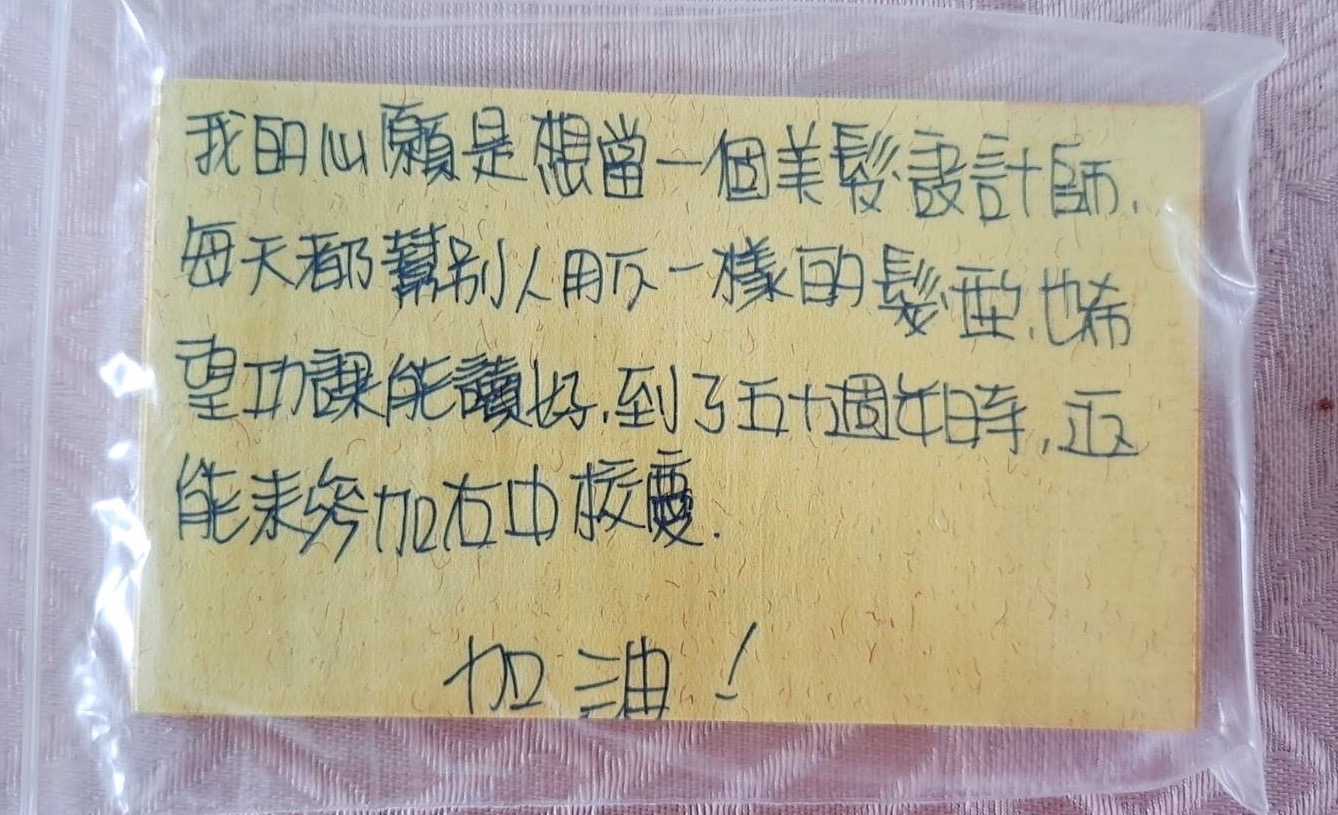 我的心願是想當一個美髮設計師.
每天都幫別人用不一樣的髮型.也希
望功課能讀好.到了五十週年時,還
能來參加右中校慶.
加油!